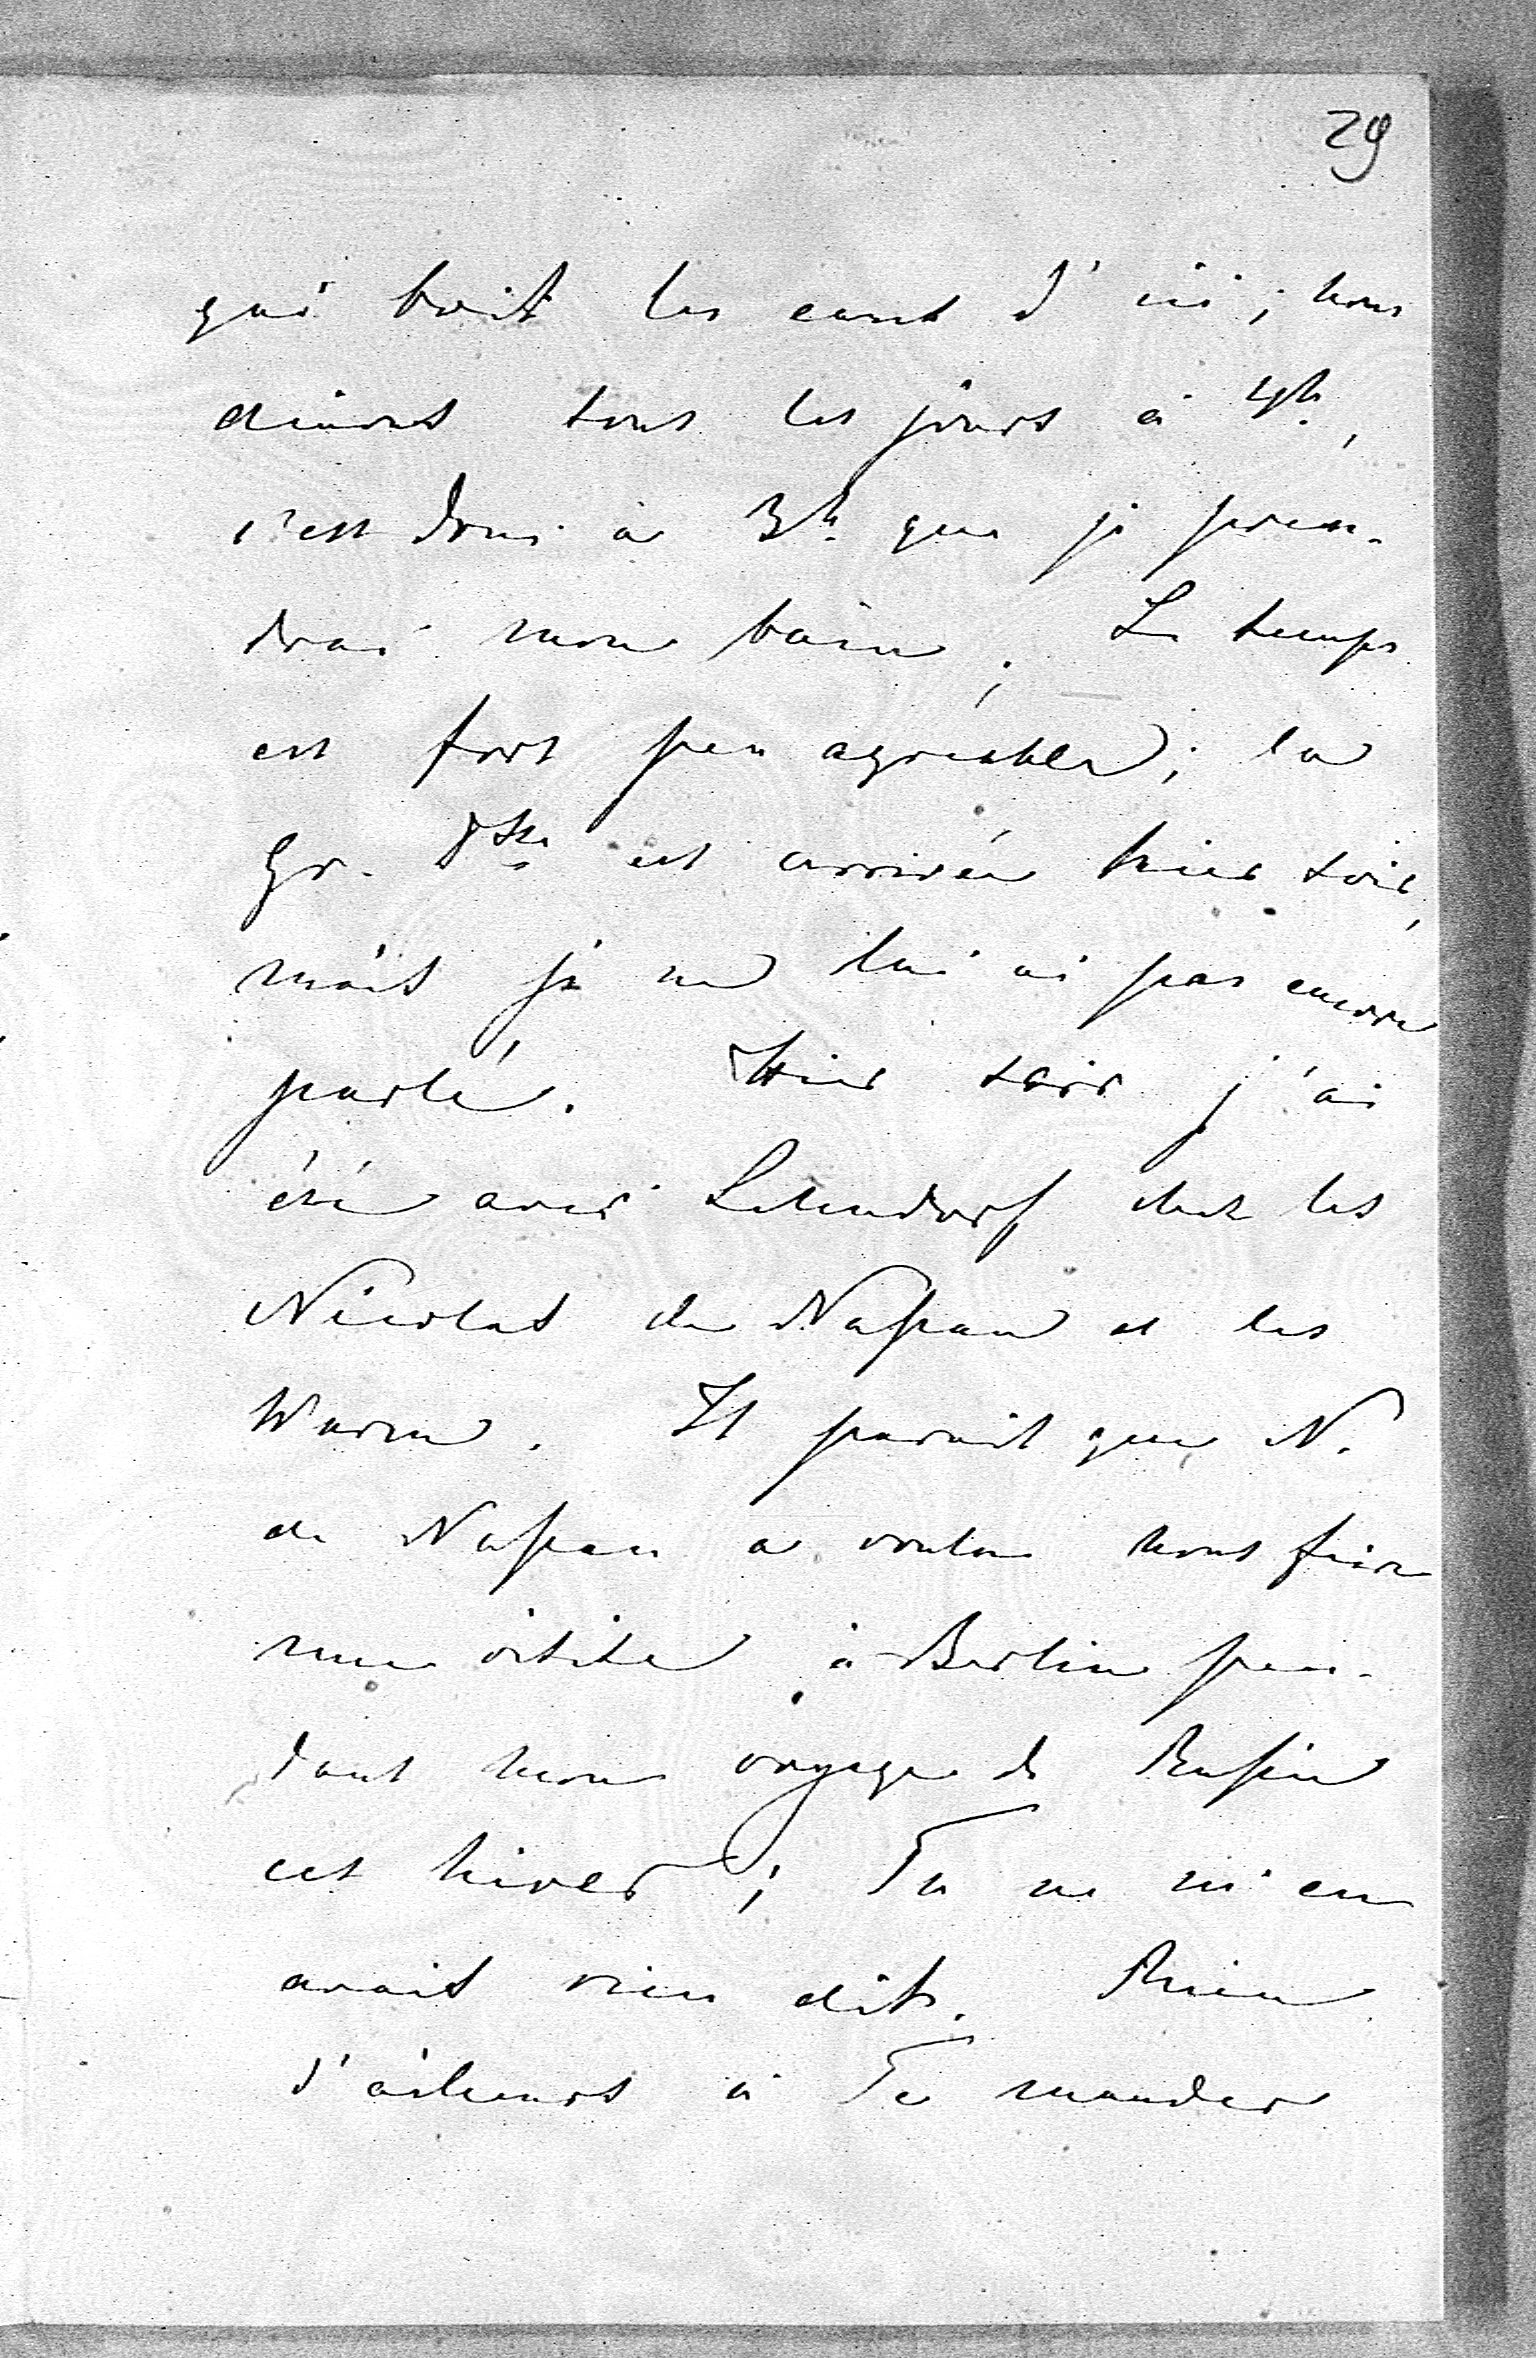 29
qui boit les eaux d'ici; nous
dinons tous les jours à 4h.,
c'est donc à 3h. que je pren-
drai mon bain. Le temps
est fort peu agréable; la
Gr. Dsse est arrivée hier soir,
mais je ne lui ai pas encore
parlé. Hier soir j'ai
été avec Lehndorf chez les
Nicolas de Nassau et les
Il parait que N.
de Nassau a voulu nous faire
une visite à Berlin pen-
dant mon voyage de Russie
cet hiver; Tu ne m'en
avait rien dit. Rien
d'ailleurs à Te mander